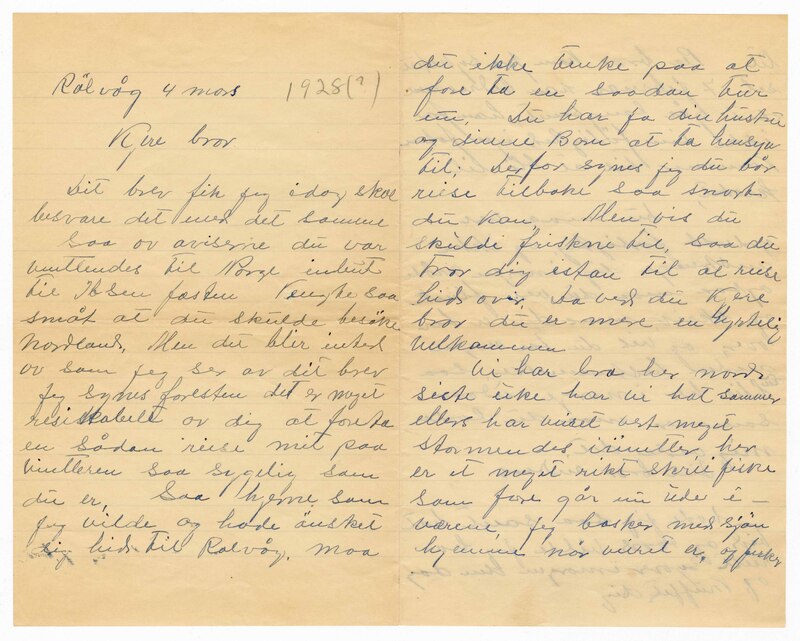 Rölvåg 4 mars 1928(?)
Kjere bror
Dit brev fik jeg idag skal
besvare det med det samme
Saa ov aviserne du var
til Norge inbut
til Ibsen fæsten saa
småt at du skulde besöke
Nordland. Men du blir intet
ov som jeg ser av dit brev
jeg synes foresten det er meget
resiskabelt ov dig at foreta
en sådan reise mit paa
vintteren saa sygelig som
du er. Saa hjerne som
jeg vilde og hade önsket
dig hids til Rolvåg. maa
du ikke tenke paa at
fore ta en saadan tur
nu. Du har jo din hustru
og dinne Born at ta hensyn
til; Derfor synes jeg du bör
reise tilbake saa snart
du kan, Men vis du
skulde friskne til, saa du
tror dig istan til at reise
hid over. Da ved du Kjere
bror du er mere en hjertelig
velkommen
Vi har bra her nord
siste uke har vi hat sommer
ellers har vert meget
stormendes i vintter, her
er et meget rikt skrei fiske
som fore går nu ude i –
værene, jeg basker med sjön
hjemme når veiret er, og fisker